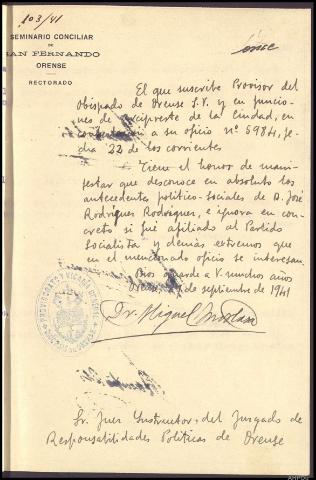 103/41
once
SEMINARIO CONCILIAR
DE
SAN FERNANDO
ORENSE
RECTORADO
El que suscribe Provisor del
Obispado de Orense S.V. y en funcio-
nes de Arcipreste de la Ciudad, en
contestación a su oficio nº 5984, fe-
cha 22 de los corrientes
Tiene el honor de mani-
festar que desconoce en absoluto los
antecedentes politico-sociales de D. José
Rodriguez Rodriguez, e ignora en con-
creto si fué afiliado al Partido
Socialista y demás extremos que
en el mencionado oficio se interesan.
Dios guarde a V. muchos años
Orense, de septiembre de 1941
Dr. Miguel
Sr. Juez Instructor del Juzgado de
Responsabilidades Politicas de Orense